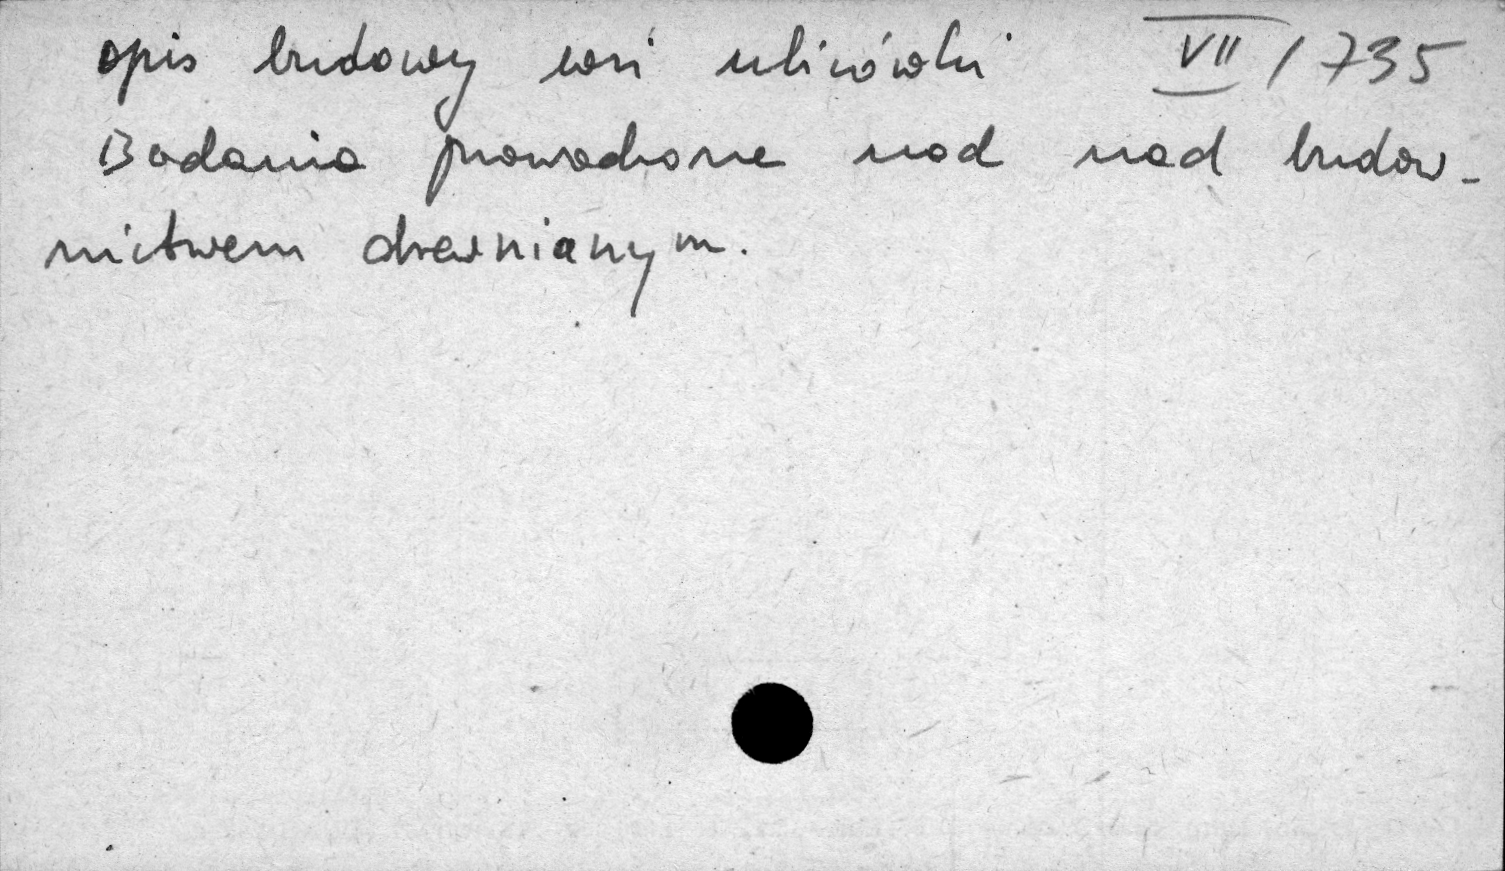 opis budowy wsi ulicówki VII / 735
Badania prowadzone nad nad budow-
nictwem drewnianym.